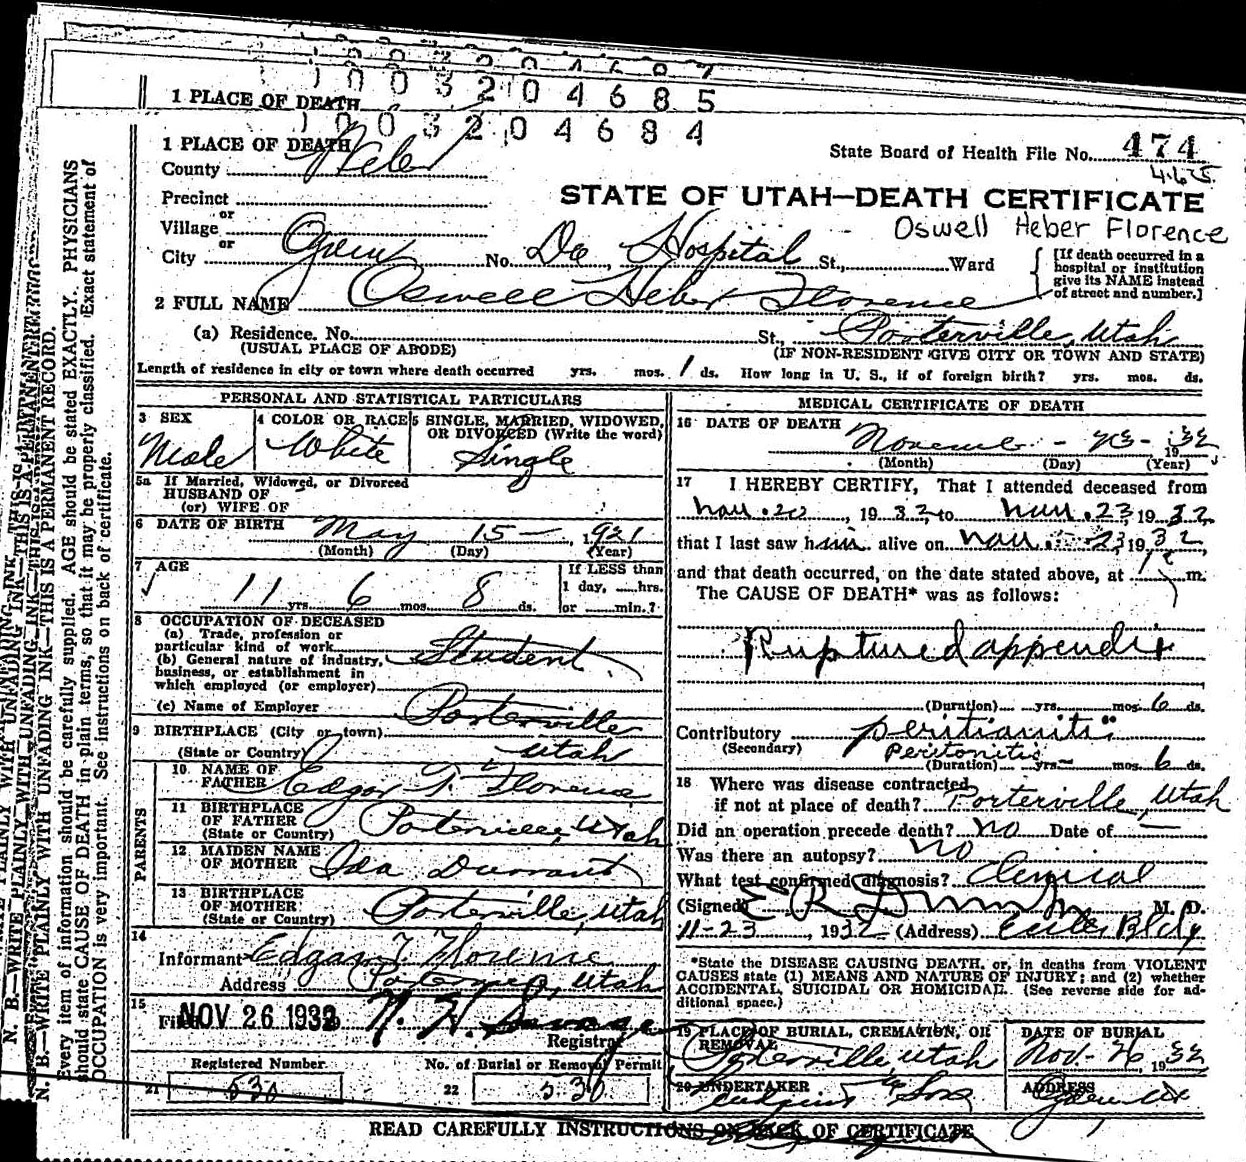 1003204685
1 PLACE OF DEATH
1003204684
1 PLACE OF DEATH
County Weber
State Board of Health File No. 474
465
STATE OF UTAH—DEATH CERTIFICATE
Oswell Heber Florence
Precinct
or
Village
or
City Ogden No. Dee Hospital St., Ward
[If death occurred in a hospital or institution give its NAME instead of street and number.]
2 FULL NAME Oswell Heber Florence
(a) Residence. No. St., Porterville, Utah
(USUAL PLACE OF ABODE) (IF NON-RESIDENT GIVE CITY OR TOWN AND STATE)
Length of residence in city or town where death occurred yrs. mos. 1 ds. How long in U. S., if of foreign birth? yrs. mos. ds.
PERSONAL AND STATISTICAL PARTICULARS
3 SEX Male
4 COLOR OR RACE White
5 SINGLE, MARRIED, WIDOWED, OR DIVORCED (Write the word) Single
5a If Married, Widowed, or Divorced
HUSBAND OF
(or) WIFE OF
6 DATE OF BIRTH May 15 — 1921
(Month) (Day) (Year)
7 AGE 11 yrs. 6 mos. 8 ds.
If LESS than
1 day, ....hrs.
or ....min.?
8 OCCUPATION OF DECEASED
(a) Trade, profession or
particular kind of work
(b) General nature of industry, Student
business, or establishment in
which employed (or employer)
(c) Name of Employer
9 BIRTHPLACE (City or town) Porterville
(State or Country) Utah
PARENTS
10 NAME OF FATHER Edgar T. Florence
11 BIRTHPLACE OF FATHER (State or Country) Porterville, Utah
12 MAIDEN NAME OF MOTHER Ida Durrant
13 BIRTHPLACE OF MOTHER (State or Country) Porterville, Utah
14
Informant Edgar T Florence
Address Porterville, Utah
15
Filed NOV 26 1932
Registrar
Registered Number
21 530
No. of Burial or Removal Permit
22 530
MEDICAL CERTIFICATE OF DEATH
16 DATE OF DEATH November - 23 - 1932
(Month) (Day) (Year)
17 I HEREBY CERTIFY, That I attended deceased from
Nov. 20, 1932, to Nov. 23, 1932
that I last saw him alive on Nov. 23 1932,
and that death occurred, on the date stated above, at m.
The CAUSE OF DEATH* was as follows:
Ruptured appendix
(Duration) yrs. mos. 6 ds.
Contributory peritianitis
(Secondary) Peritonitis
(Duration) yrs — mos. 6 ds.
18 Where was disease contracted
if not at place of death? Porterville, Utah
Did an operation precede death? no Date of —
Was there an autopsy? no
What test confirmed diagnosis? Clinical
(Signed) E R M. D.
11-23, 1932 (Address) Eccles Bldg
*State the DISEASE CAUSING DEATH, or, in deaths from VIOLENT
CAUSES state (1) MEANS AND NATURE OF INJURY; and (2) whether
ACCIDENTAL, SUICIDAL OR HOMICIDAL. (See reverse side for ad-
ditional space.)
19 PLACE OF BURIAL, CREMATION, OR REMOVAL Porterville, Utah
DATE OF BURIAL Nov- 26, 1932
20 UNDERTAKER & Sons
ADDRESS Ogden Ut
READ CAREFULLY INSTRUCTIONS ON BACK OF CERTIFICATE
N. B.—WRITE PLAINLY WITH UNFADING INK—THIS IS A PERMANENT RECORD.
Every item of information should be carefully supplied. AGE should be stated EXACTLY. PHYSICIANS
should state CAUSE OF DEATH in plain terms, so that it may be properly classified. Exact statement of
OCCUPATION is very important. See instructions on back of certificate.